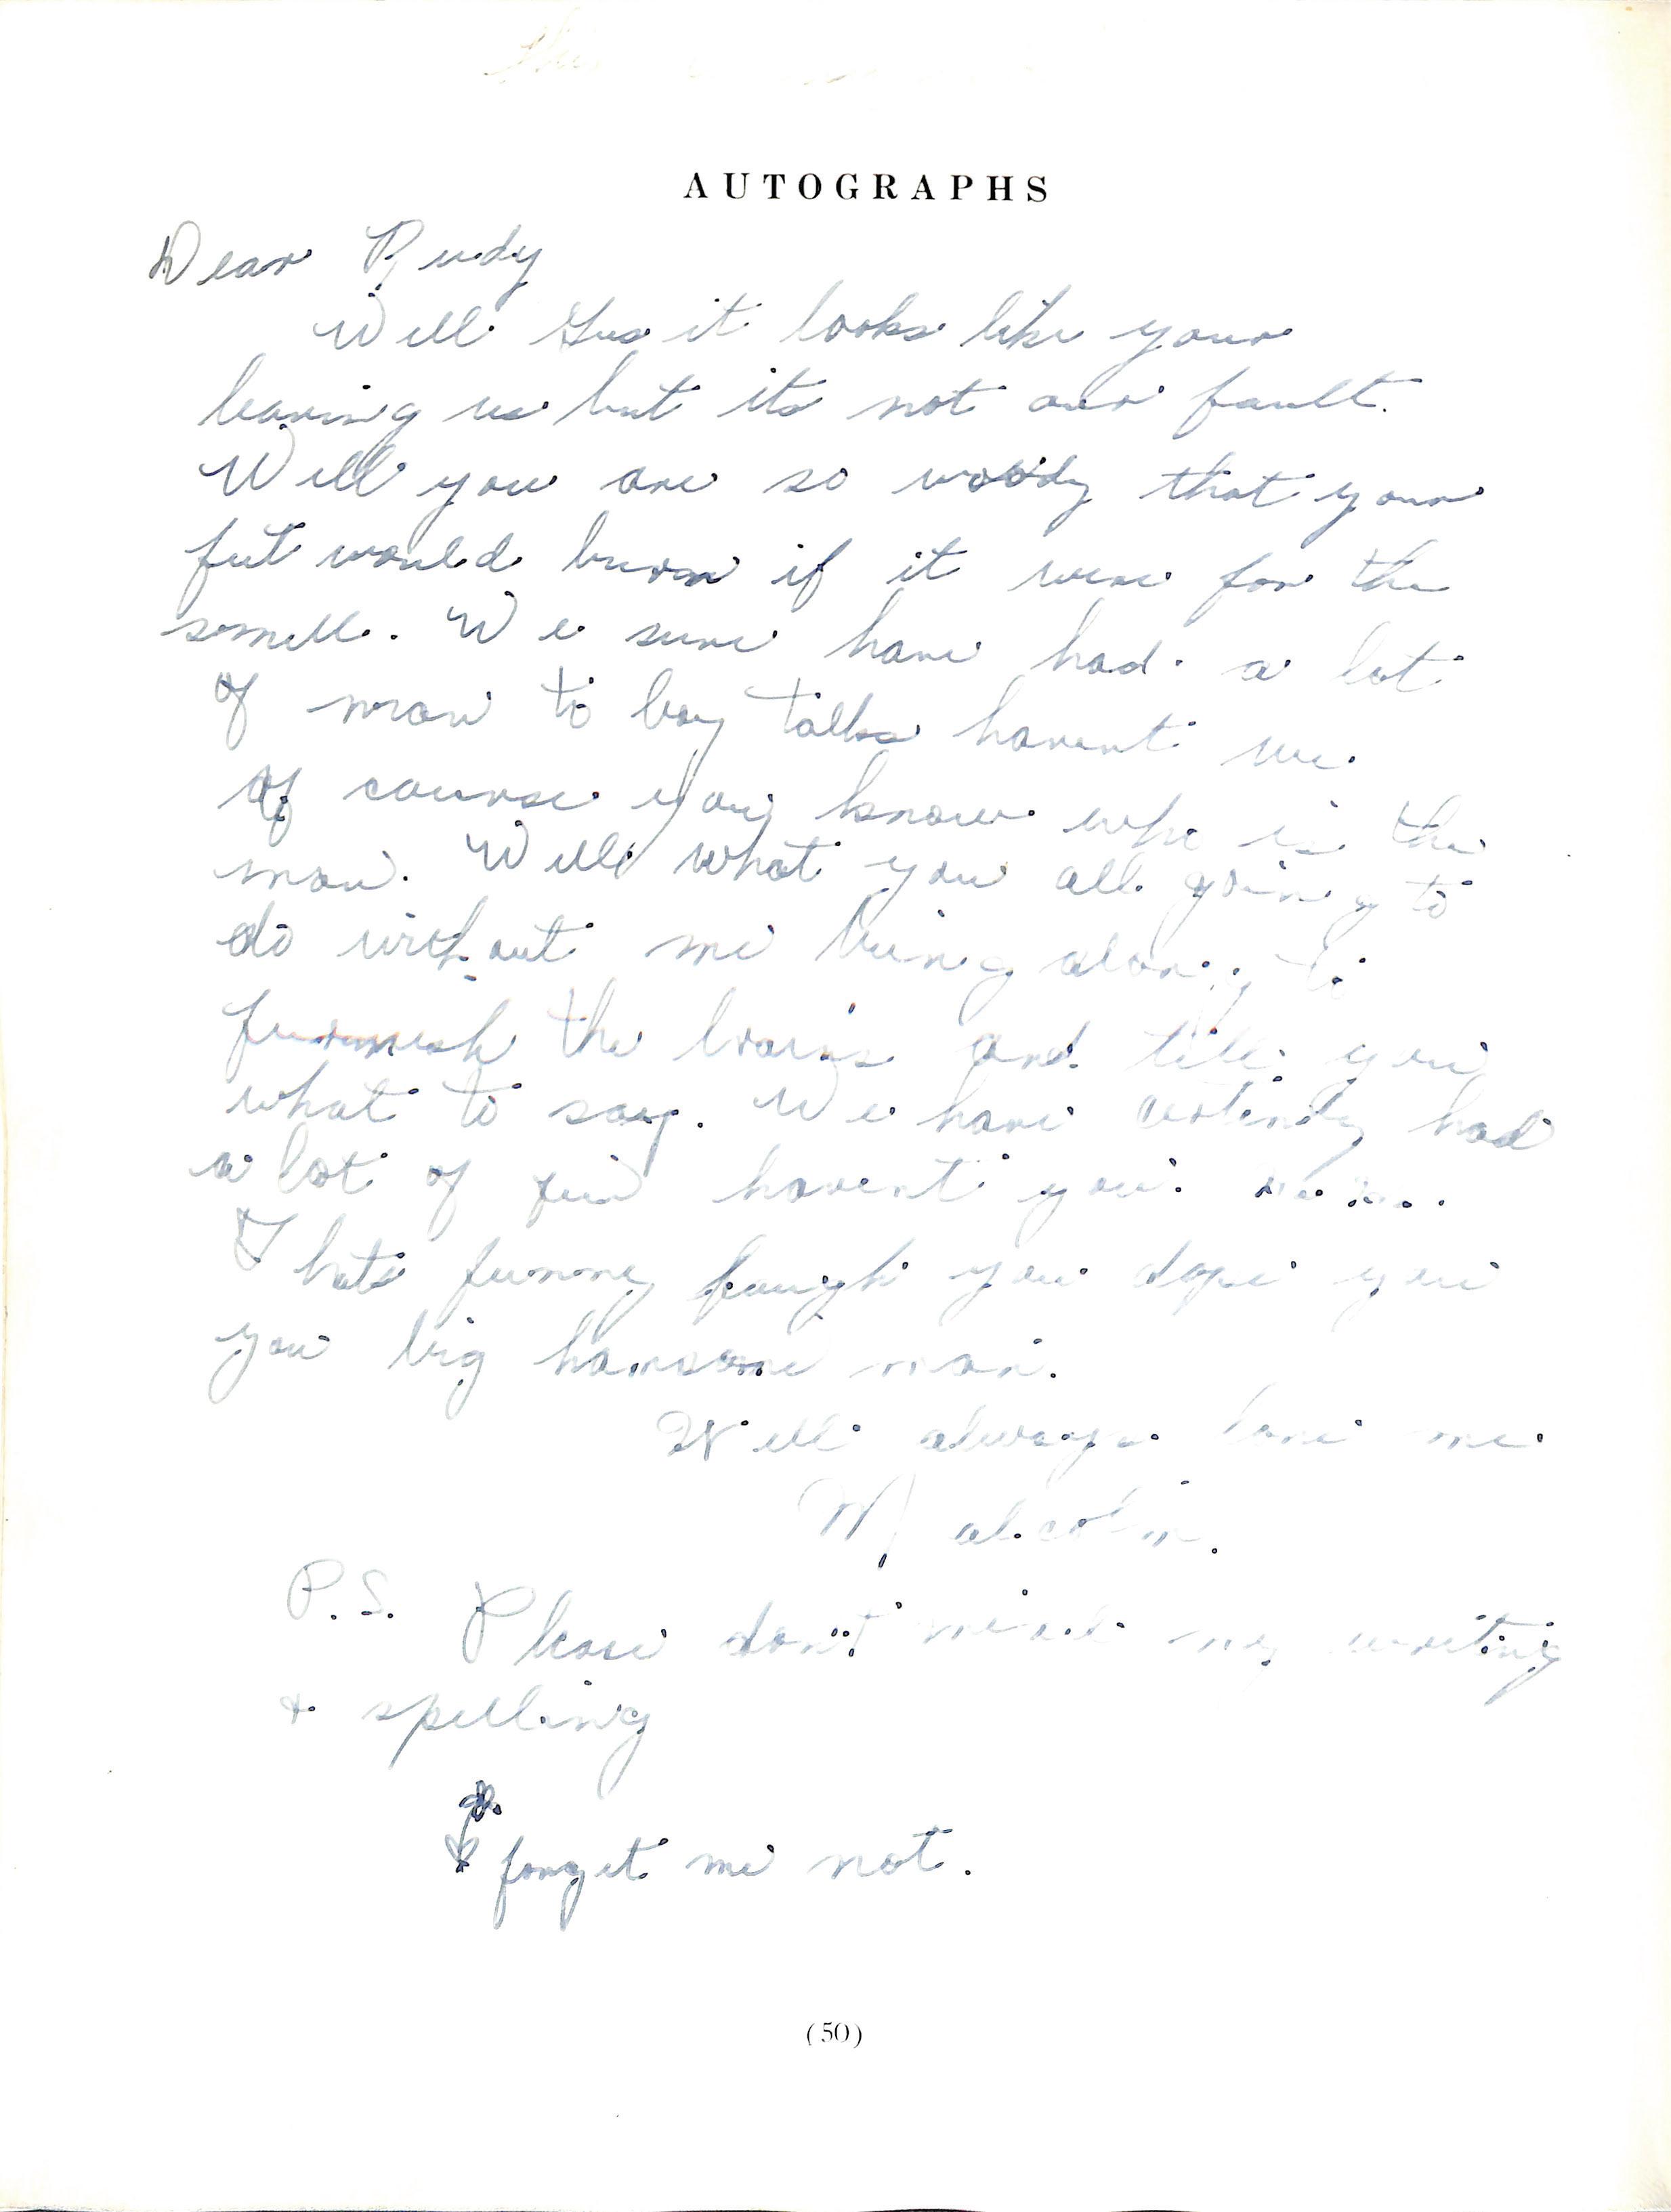 AUTOGRAPHS
Dear Rudy
Well Gus it looks like your
leaving us but its not our fault.
Well you are so woody that your
feet would burn if it were for the
smell. We sure have had a lot
of man to boy talks havent we.
Of course you know who is the
man. Well what you all going to
do without me being along to
furnish the brains and tell you
what to say. We have certenly had
a lot of fun havent you.
I hate funny you dope you
you big hansome man.
Well always love me.
Malcolm.
P.S. Please don't mind my writing
& spelling
forget me not.
(50)